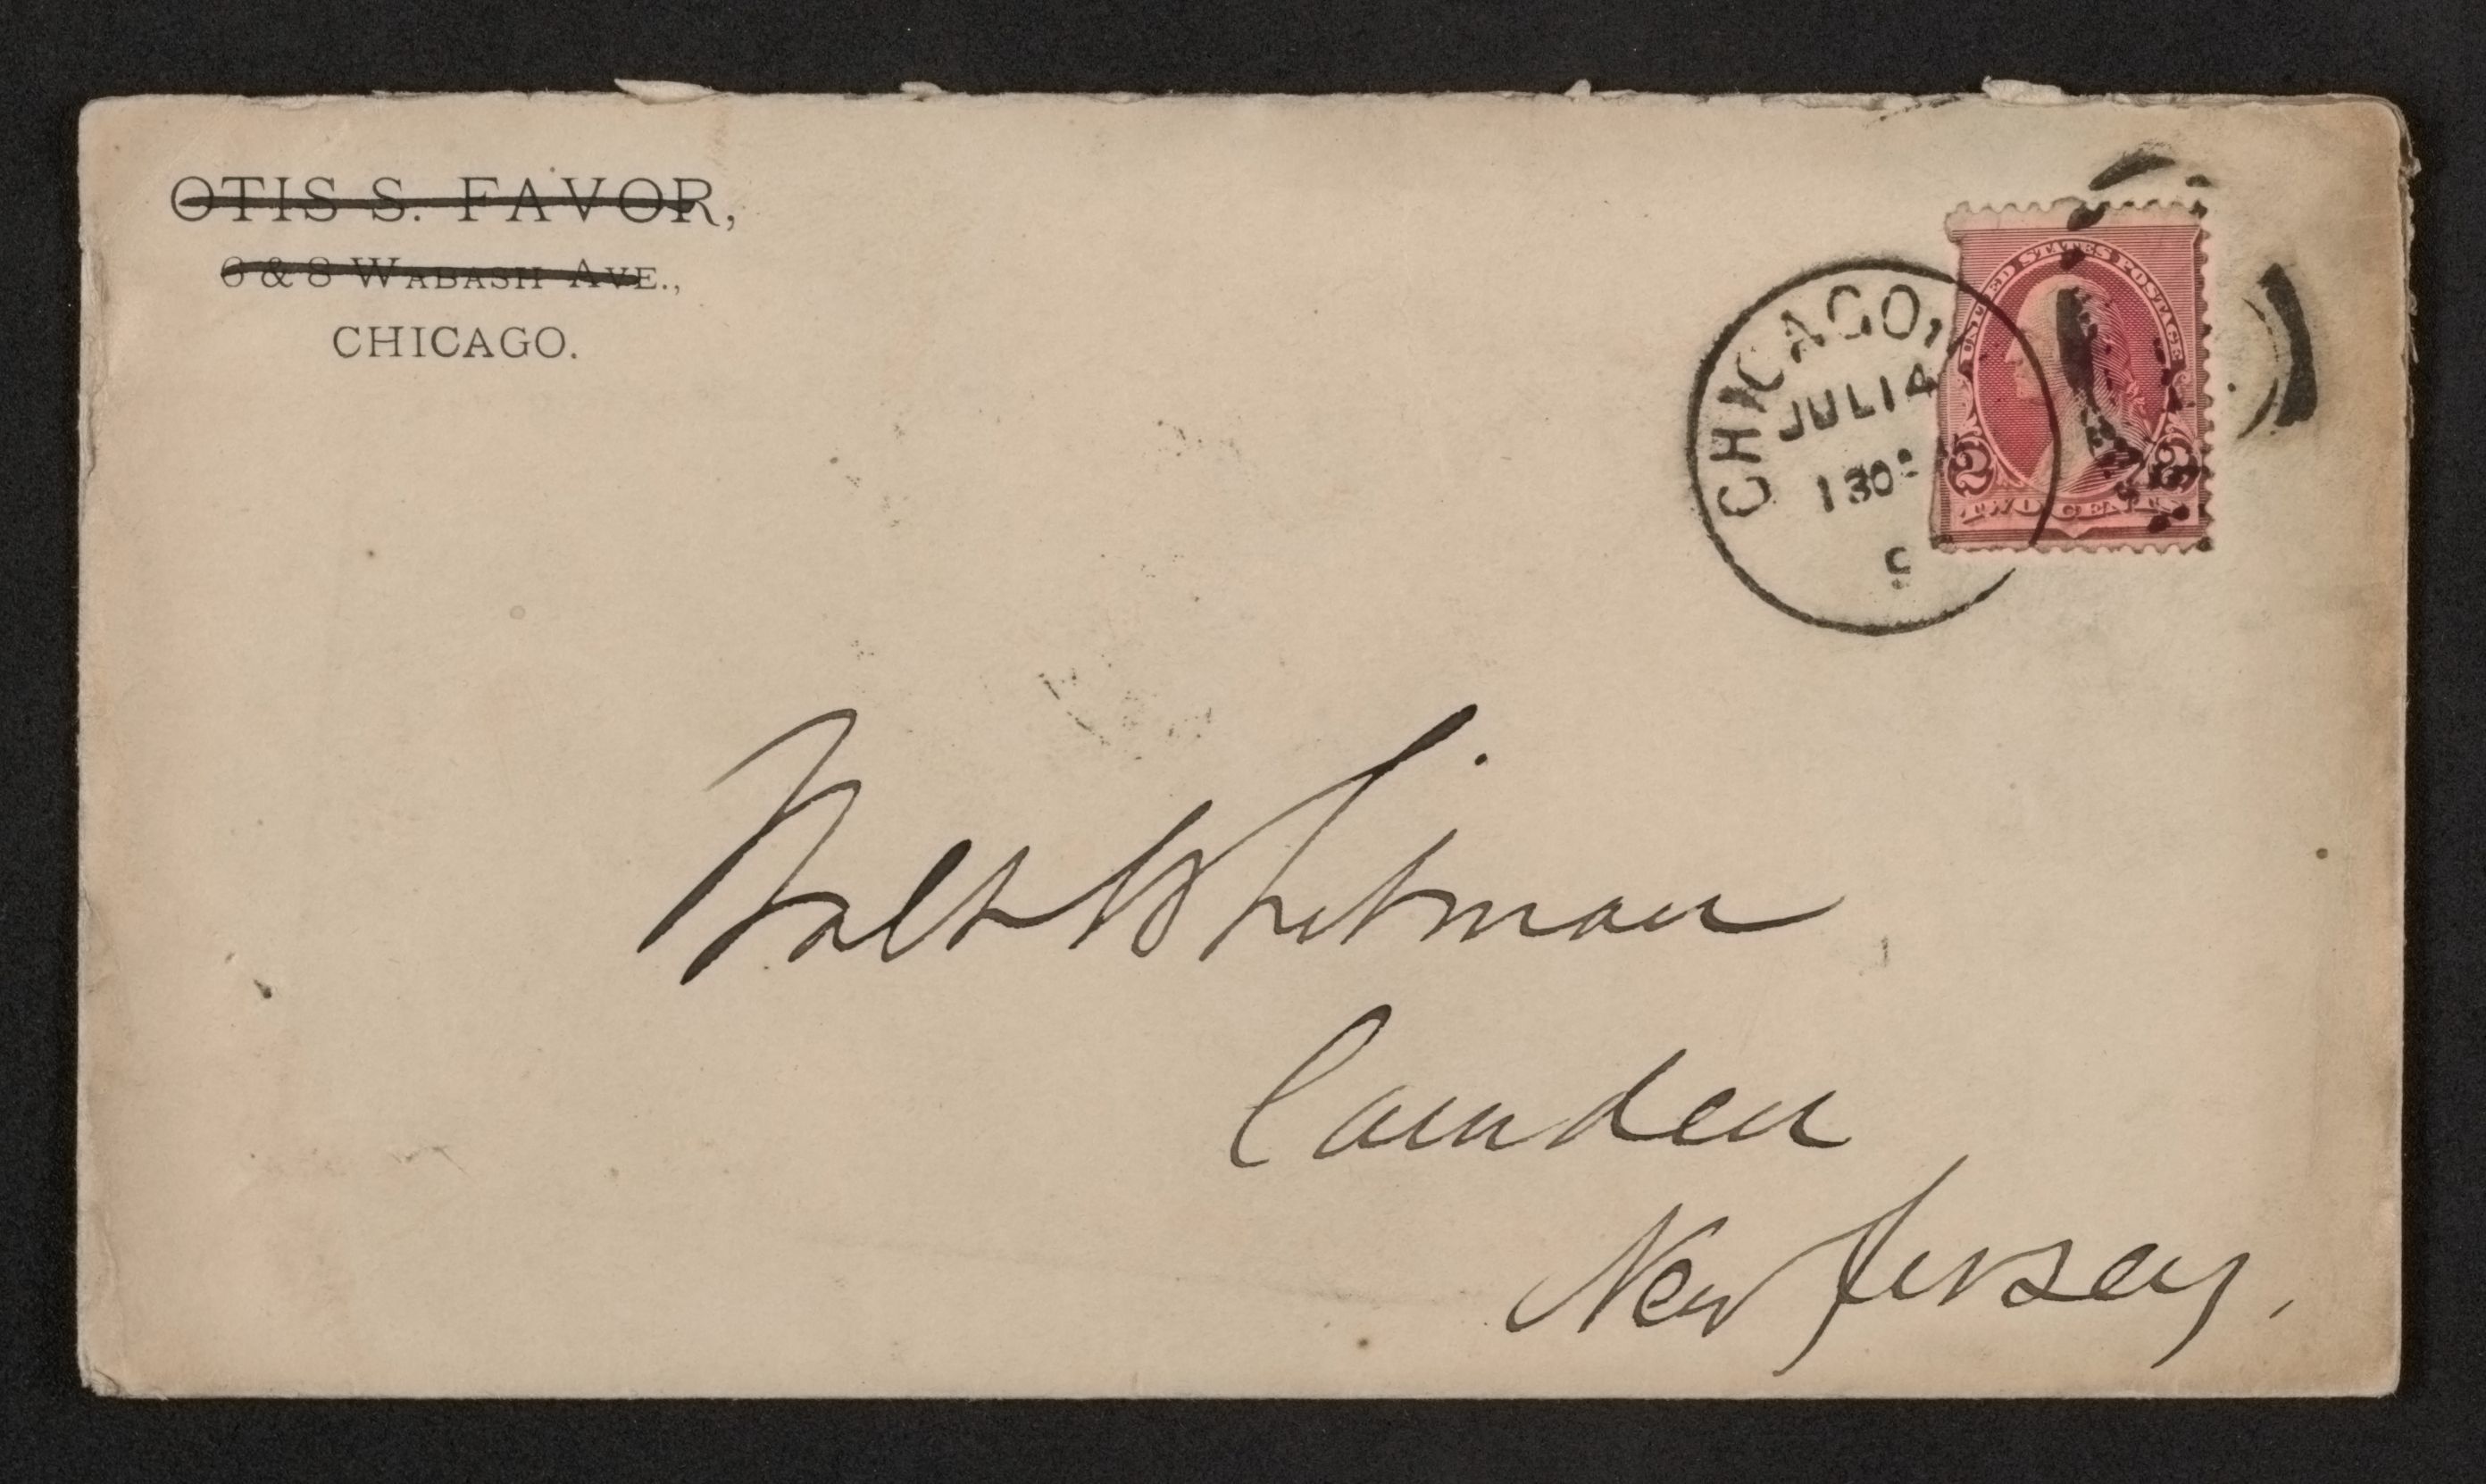 OTIS S. FAVOR,
6 & 8 WABASH AVE.,
CHICAGO.
CHICAGO,
JUL 14
UNITED STATES POSTAGE
2 2
TWO CENTS
Walt Whitman
Camden
New Jersey.